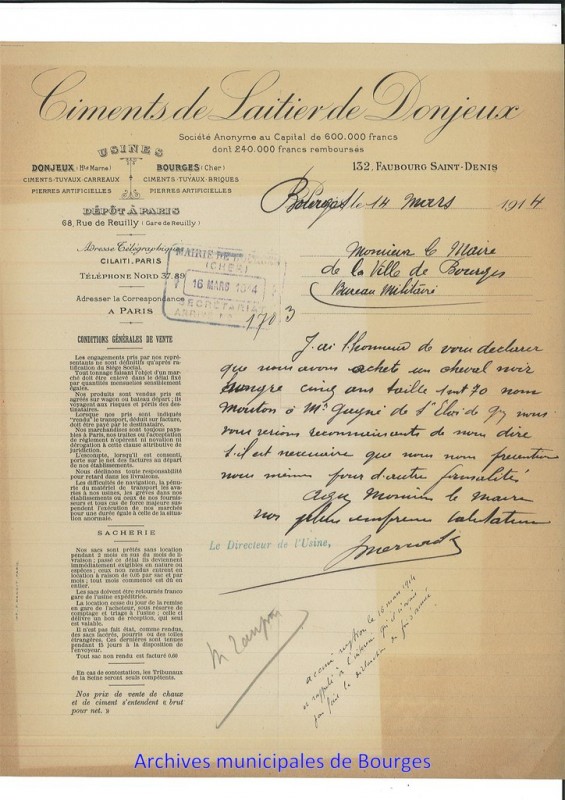 Ciments de Laitier de Donjeux
Société Anonyme au Capital de 600.000 francs
dont 240.000 francs remboursés
USINES
DONJEUX (Hte Marne)
CIMENTS-TUYAUX-CARREAUX
PIERRES ARTIFICIELLES
BOURGES (Cher)
CIMENTS-TUYAUX-BRIQUES
PIERRES ARTIFICIELLES
DÉPÔT À PARIS
68, Rue de Reuilly (Gare de Reuilly)
Adresse Télégraphique
CILAITI, PARIS
TÉLÉPHONE NORD 37.89
Adresser la Correspondance
A PARIS
132, FAUBOURG SAINT-DENIS
Bourges le 14 mars 1914
MAIRIE DE
(CHER)
16 MARS 1914
SECRÉTARIAT
1703
Monsieur le Maire
de la Ville de Bourges
Bureau Militaire
J'ai l'honneur de vous déclarer
que nous avons acheté un cheval noir
hongre cinq ans taille 1m 70 nom
Mouton à Mr de St Eloi de Gy nous
vous serions reconnaissants de nous dire
s'il est nécessaire que nous nous présentions
nous même pour d'autre formalités
Monsieur le maire
nos plus salutations
Le Directeur de l'Usine,
CONDITIONS GÉNÉRALES DE VENTE
Les engagements pris par nos repré-
sentants ne sont définitifs qu'après ra-
tification du Siège Social.
Tout tonnage faisant l'objet d'un mar-
ché doit être enlevé dans le délai fixé
par quantités mensuelles sensiblement
égales.
Nos produits sont vendus pris et
agréés sur wagon ou bateau départ; ils
voyagent aux risques et périls des des-
tinataires.
Lorsque nos prix sont indiqués
"rendu" le transport, déduit sur facture,
doit être payé par le destinataire.
Nos marchandises sont toujours paya-
bles à Paris, nos traites ou l'acceptation
de règlement n'opèrent ni novation ni
dérogation à cette clause attributive de
juridiction.
L'escompte, lorsqu'il est consenti,
porte sur le net des factures au départ
de nos établissements.
Nous déclinons toute responsabilité
pour retard dans les livraisons.
Les difficultés de navigation, la pénu-
rie du matériel de transport les ava-
ries à nos usines, les grèves dans nos
établissements ou ceux de nos fournis-
seurs et tous cas de force majeure sus-
pendent l'exécution de nos marchés
pour une durée égale à celle de la situa-
tion anormale.
SACHERIE
Nos sacs sont prêtés sans location
pendant 2 mois en sus du mois de la li-
vraison; passé ce délai ils deviennent
immédiatement exigibles en nature ou
espèces; ceux non rendus entrent en
location à raison de 0,05 par sac et par
mois; tout mois commencé est dû en
entier.
Les sacs doivent être retournés franco
gare de l'usine expéditrice.
La location cesse du jour de la remise
en gare de l'acheteur, sous réserve de
comptage et triage à l'usine; celle ci
délivre un bon de réception, qui seul
est valable.
Il n'est pas fait état, comme rendus,
des sacs lacérés, pourris ou des toiles
étrangères. Ces dernières sont tenues
pendant 15 jours à la disposition de
l'envoyeur.
Tout sac non rendu est facturé 0,60
En cas de contestation, les Tribunaux
de la Seine seront seuls compétents.
Nos prix de vente de chaux
et de ciment s'entendent « brut
pour net. »
Archives municipales de Bourges